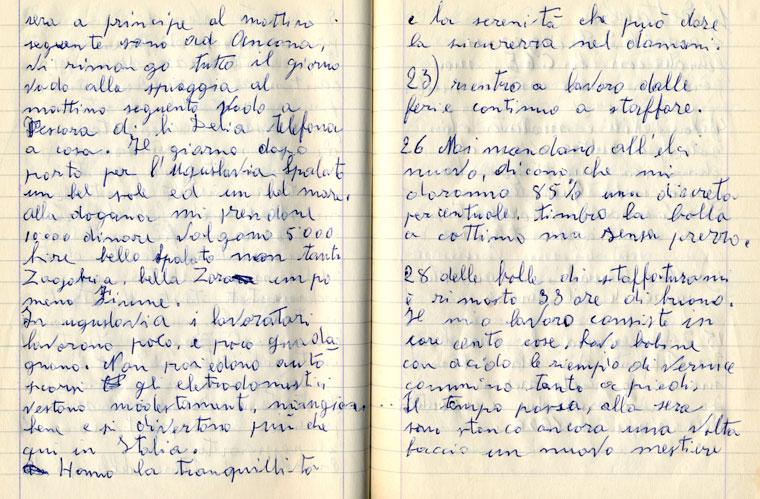 sera a principe al mattino
seguente sono ad Ancona,
vi rimango tutto il giorno
vado alla spiaggia al
mattino seguente vado a
Pescara di li Delia telefona
a casa. Il giorno dopo
parto per l'uguslavia Spalato
un bel sole ed un bel mare.
alla dogana mi prendono
10000 dinare valgono 5000
lire bello Spalato non tanto
Zagabria, bella Zara un po
meno Fiume.
In uguslavia i lavoratari
lavorono poco, e poco guada
gnino. Non posiedono auto
scarsi gli eletrodomestici
vestono modestament, mangian
bene e si divertono più che
qui in Italia.
Hanno la tranquillità
e la serenità che può dare
la sicurezza nel domani.
23) rientro a lavoro dalle
ferie continuo a staffare.
26 Mi mandano all'elci
nuovo, dicono, che mi
daranno 85% una discreta
percentuale, timbro la bolla
a cottimo ma senza prezzo.
28 delle bolle di staffatura mi
è rimasto 33 ore di buono.
Il mio lavoro consiste in
care cento cose, lavo bobine
con acido le riempio di vernice
cammino tanto a piedi.
Il tempo passa, alla sera
sono stanco ancora una volta
faccio un nuovo mestiere